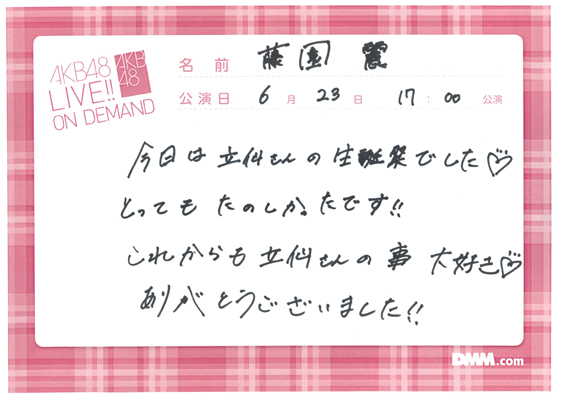 AKB48
LIVE!!
ON DEMAND
AKB
48
名前 藤園 麗
公演日 6月 23日 17:00 公演
今日は立仙さんの生誕祭でした♡
とってもたのしかったです!!
これからも立仙さんの事 大好き♡
ありがとうございました!!
DMM.com